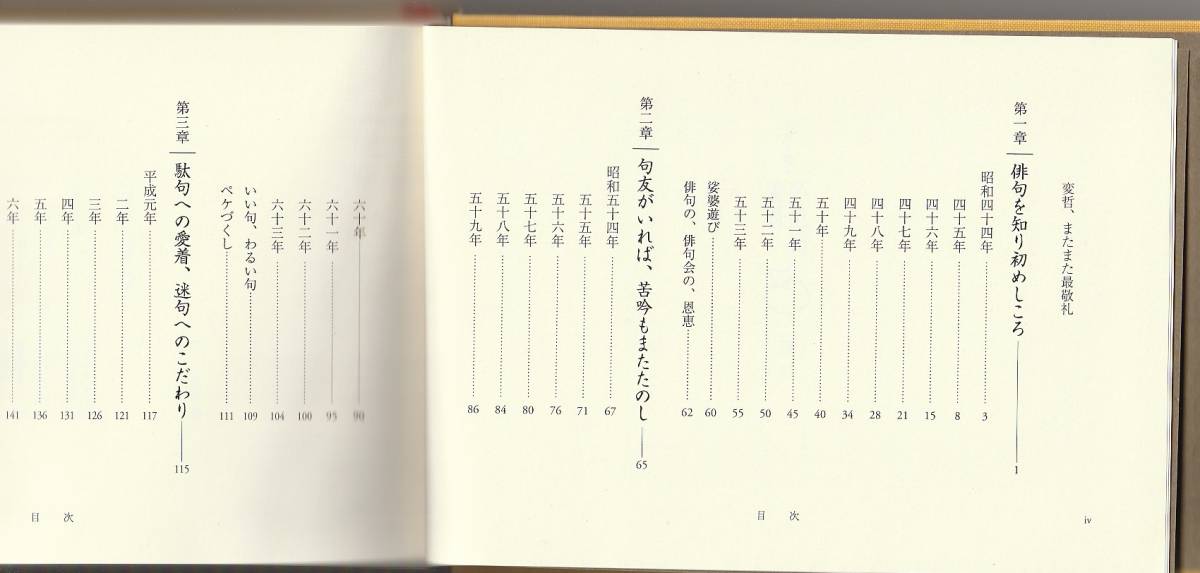 変哲、またまた最敬礼
第一章 俳句を知り初めしころ 1
昭和四十四年 3
四十五年 8
四十六年 15
四十七年 21
四十八年 28
四十九年 34
五十年 40
五十一年 45
五十二年 50
五十三年 55
娑婆遊び 60
俳句の、俳句会の、恩恵 62
第二章 句友がいれば、苦吟もまたたのし 65
昭和五十四年 67
五十五年 71
五十六年 76
五十七年 80
五十八年 84
五十九年 86
iv
目 次
六十年 90
六十一年 95
六十二年 100
六十三年 104
いい句、わるい句 109
ペケづくし 111
第三章 駄句への愛着、迷句へのこだわり 115
平成元年 117
二年 121
三年 126
四年 131
五年 136
六年 141
目 次